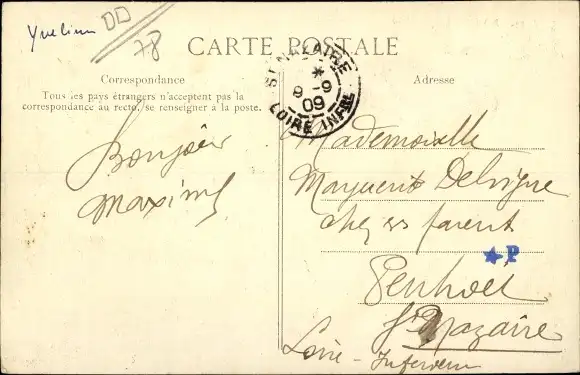 Yvelines
DD
78
CARTE POSTALE
Correspondance
Tous les pays étrangers n'acceptent pas la
correspondance au recto, se renseigner à la poste.
Adresse
ST NAZAIRE
8 -9
09
LOIRE INFRE
Bonjour
Maxime
Mademoiselle
Marguerite Delvigne
chez ses parent
P
Penhoët
St Nazaire
Loire - Inferieure